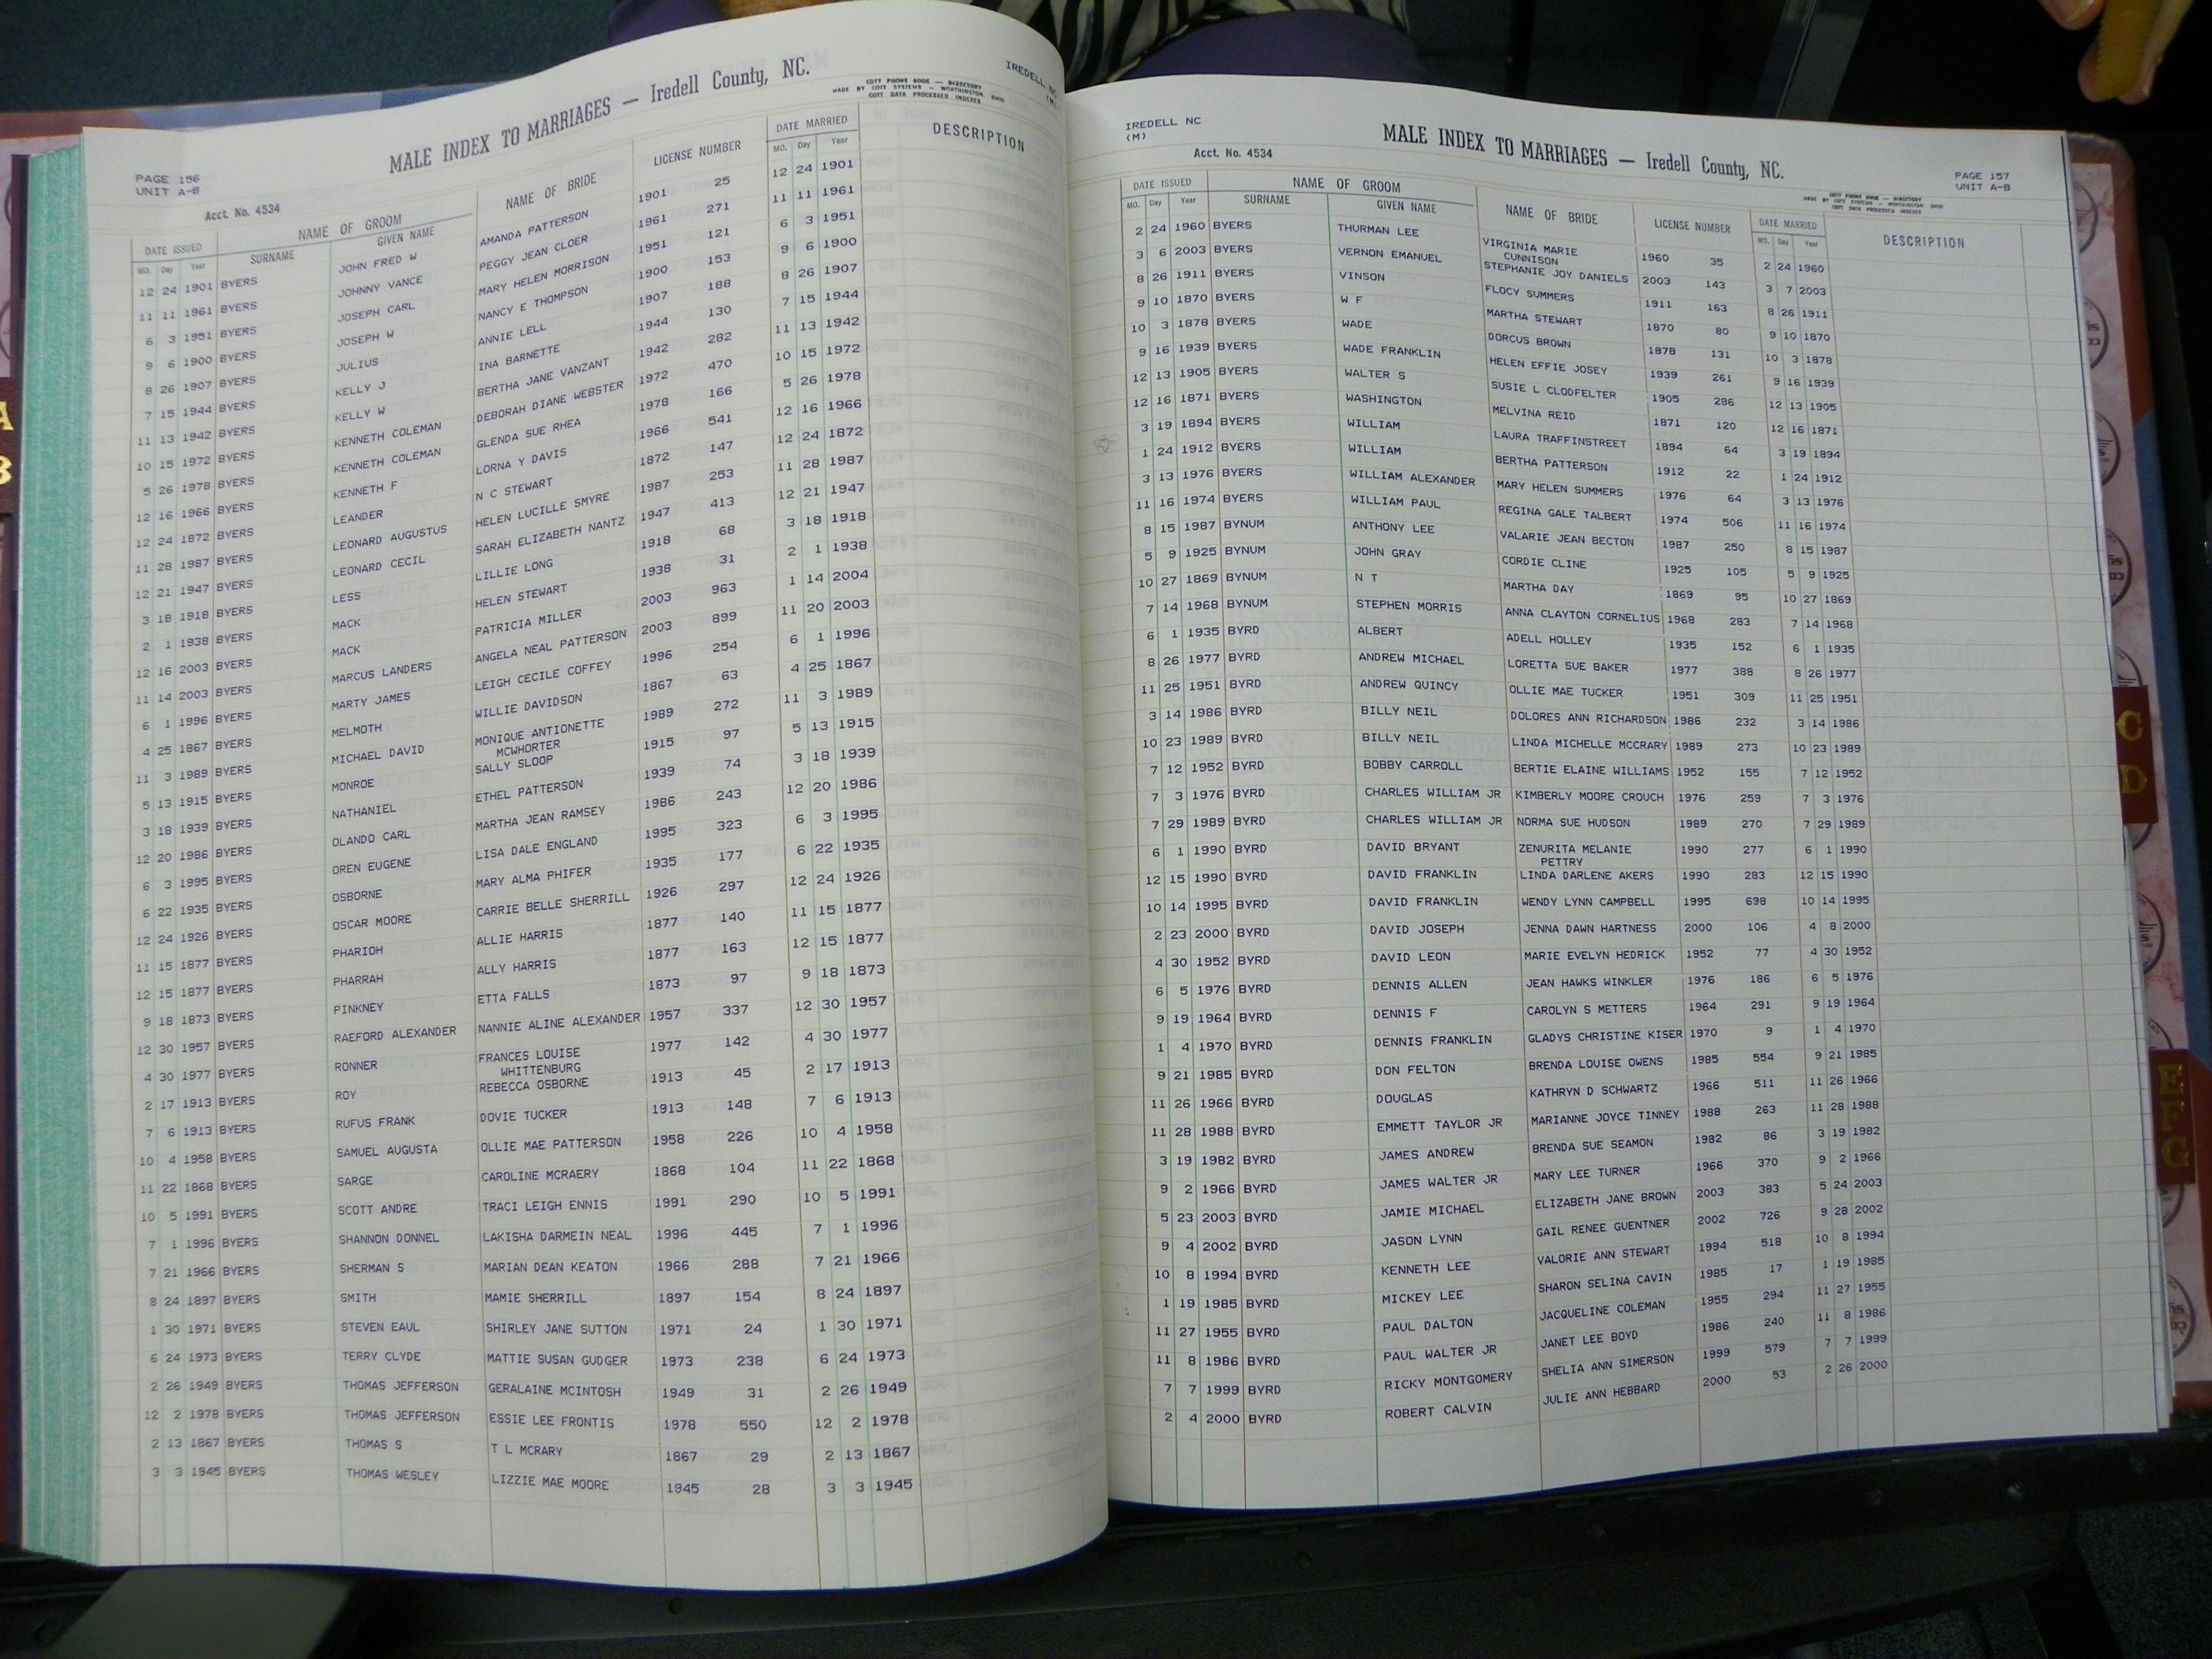 MALE INDEX TO MARRIAGES — Iredell County, NC.
COTT PHONE BOOK — DIRECTORY
MADE BY COTT SYSTEMS — WORTHINGTON, OHIO
COTT DATA PROCESSED INDEXES
PAGE 156
UNIT A-B
Acct. No. 4534
DATE ISSUED NAME OF GROOM NAME OF BRIDE LICENSE NUMBER DATE MARRIED DESCRIPTION
MO. Day Year SURNAME GIVEN NAME MO. Day Year
12 24 1901 BYERS JOHN FRED W AMANDA PATTERSON 1901 25 12 24 1901
11 11 1961 BYERS JOHNNY VANCE PEGGY JEAN CLOER 1961 271 11 11 1961
6 3 1951 BYERS JOSEPH CARL MARY HELEN MORRISON 1951 121 6 3 1951
9 6 1900 BYERS JOSEPH W NANCY E THOMPSON 1900 153 9 6 1900
8 26 1907 BYERS JULIUS ANNIE LELL 1907 188 8 26 1907
7 15 1944 BYERS KELLY J INA BARNETTE 1944 130 7 15 1944
11 13 1942 BYERS KELLY W BERTHA JANE VANZANT 1942 282 11 13 1942
10 15 1972 BYERS KENNETH COLEMAN DEBORAH DIANE WEBSTER 1972 470 10 15 1972
5 26 1978 BYERS KENNETH COLEMAN GLENDA SUE RHEA 1978 166 5 26 1978
12 16 1966 BYERS KENNETH F LORNA Y DAVIS 1966 541 12 16 1966
12 24 1872 BYERS LEANDER N C STEWART 1872 147 12 24 1872
11 28 1987 BYERS LEONARD AUGUSTUS HELEN LUCILLE SMYRE 1987 253 11 28 1987
12 21 1947 BYERS LEONARD CECIL SARAH ELIZABETH NANTZ 1947 413 12 21 1947
3 18 1918 BYERS LESS LILLIE LONG 1918 68 3 18 1918
2 1 1938 BYERS MACK HELEN STEWART 1938 31 2 1 1938
12 16 2003 BYERS MACK PATRICIA MILLER 2003 963 1 14 2004
11 14 2003 BYERS MARCUS LANDERS ANGELA NEAL PATTERSON 2003 899 11 20 2003
6 1 1996 BYERS MARTY JAMES LEIGH CECILE COFFEY 1996 254 6 1 1996
4 25 1867 BYERS MELMOTH WILLIE DAVIDSON 1867 63 4 25 1867
11 3 1989 BYERS MICHAEL DAVID MONIQUE ANTIONETTE 1989 272 11 3 1989
MCWHORTER
5 13 1915 BYERS MONROE SALLY SLOOP 1915 97 5 13 1915
3 18 1939 BYERS NATHANIEL ETHEL PATTERSON 1939 74 3 18 1939
12 20 1986 BYERS OLANDO CARL MARTHA JEAN RAMSEY 1986 243 12 20 1986
6 3 1995 BYERS OREN EUGENE LISA DALE ENGLAND 1995 323 6 3 1995
6 22 1935 BYERS OSBORNE MARY ALMA PHIFER 1935 177 6 22 1935
12 24 1926 BYERS OSCAR MOORE CARRIE BELLE SHERRILL 1926 297 12 24 1926
11 15 1877 BYERS PHARIOH ALLIE HARRIS 1877 140 11 15 1877
12 15 1877 BYERS PHARRAH ALLY HARRIS 1877 163 12 15 1877
9 18 1873 BYERS PINKNEY ETTA FALLS 1873 97 9 18 1873
12 30 1957 BYERS RAEFORD ALEXANDER NANNIE ALINE ALEXANDER 1957 337 12 30 1957
4 30 1977 BYERS RONNER FRANCES LOUISE 1977 142 4 30 1977
WHITTENBURG
2 17 1913 BYERS ROY REBECCA OSBORNE 1913 45 2 17 1913
7 6 1913 BYERS RUFUS FRANK DOVIE TUCKER 1913 148 7 6 1913
10 4 1958 BYERS SAMUEL AUGUSTA OLLIE MAE PATTERSON 1958 226 10 4 1958
11 22 1868 BYERS SARGE CAROLINE MCRAERY 1868 104 11 22 1868
10 5 1991 BYERS SCOTT ANDRE TRACI LEIGH ENNIS 1991 290 10 5 1991
7 1 1996 BYERS SHANNON DONNEL LAKISHA DARMEIN NEAL 1996 445 7 1 1996
7 21 1966 BYERS SHERMAN S MARIAN DEAN KEATON 1966 288 7 21 1966
8 24 1897 BYERS SMITH MAMIE SHERRILL 1897 154 8 24 1897
1 30 1971 BYERS STEVEN EAUL SHIRLEY JANE SUTTON 1971 24 1 30 1971
6 24 1973 BYERS TERRY CLYDE MATTIE SUSAN GUDGER 1973 238 6 24 1973
2 26 1949 BYERS THOMAS JEFFERSON GERALAINE MCINTOSH 1949 31 2 26 1949
12 2 1978 BYERS THOMAS JEFFERSON ESSIE LEE FRONTIS 1978 550 12 2 1978
2 13 1867 BYERS THOMAS S T L MCRARY 1867 29 2 13 1867
3 3 1945 BYERS THOMAS WESLEY LIZZIE MAE MOORE 1945 28 3 3 1945
IREDELL NC
(M)
IREDELL NC
(M)
MALE INDEX TO MARRIAGES — Iredell County, NC.
Acct. No. 4534
PAGE 157
UNIT A-B
COTT PHONE BOOK — DIRECTORY
MADE BY COTT SYSTEMS — WORTHINGTON, OHIO
COTT DATA PROCESSED INDEXES
DATE ISSUED NAME OF GROOM NAME OF BRIDE LICENSE NUMBER DATE MARRIED DESCRIPTION
MO. Day Year SURNAME GIVEN NAME MO. Day Year
2 24 1960 BYERS THURMAN LEE VIRGINIA MARIE 1960 35 2 24 1960
CUNNISON
3 6 2003 BYERS VERNON EMANUEL STEPHANIE JOY DANIELS 2003 143 3 7 2003
8 26 1911 BYERS VINSON FLOCY SUMMERS 1911 163 8 26 1911
9 10 1870 BYERS W F MARTHA STEWART 1870 80 9 10 1870
10 3 1878 BYERS WADE DORCUS BROWN 1878 131 10 3 1878
9 16 1939 BYERS WADE FRANKLIN HELEN EFFIE JOSEY 1939 261 9 16 1939
12 13 1905 BYERS WALTER S SUSIE L CLODFELTER 1905 286 12 13 1905
12 16 1871 BYERS WASHINGTON MELVINA REID 1871 120 12 16 1871
3 19 1894 BYERS WILLIAM LAURA TRAFFINSTREET 1894 64 3 19 1894
1 24 1912 BYERS WILLIAM BERTHA PATTERSON 1912 22 1 24 1912
3 13 1976 BYERS WILLIAM ALEXANDER MARY HELEN SUMMERS 1976 64 3 13 1976
11 16 1974 BYERS WILLIAM PAUL REGINA GALE TALBERT 1974 506 11 16 1974
8 15 1987 BYNUM ANTHONY LEE VALARIE JEAN BECTON 1987 250 8 15 1987
5 9 1925 BYNUM JOHN GRAY CORDIE CLINE 1925 105 5 9 1925
10 27 1869 BYNUM N T MARTHA DAY 1869 95 10 27 1869
7 14 1968 BYNUM STEPHEN MORRIS ANNA CLAYTON CORNELIUS 1968 283 7 14 1968
6 1 1935 BYRD ALBERT ADELL HOLLEY 1935 152 6 1 1935
8 26 1977 BYRD ANDREW MICHAEL LORETTA SUE BAKER 1977 388 8 26 1977
11 25 1951 BYRD ANDREW QUINCY OLLIE MAE TUCKER 1951 309 11 25 1951
3 14 1986 BYRD BILLY NEIL DOLORES ANN RICHARDSON 1986 232 3 14 1986
10 23 1989 BYRD BILLY NEIL LINDA MICHELLE MCCRARY 1989 273 10 23 1989
7 12 1952 BYRD BOBBY CARROLL BERTIE ELAINE WILLIAMS 1952 155 7 12 1952
7 3 1976 BYRD CHARLES WILLIAM JR KIMBERLY MOORE CROUCH 1976 259 7 3 1976
7 29 1989 BYRD CHARLES WILLIAM JR NORMA SUE HUDSON 1989 270 7 29 1989
6 1 1990 BYRD DAVID BRYANT ZENURITA MELANIE 1990 277 6 1 1990
PETTRY
12 15 1990 BYRD DAVID FRANKLIN LINDA DARLENE AKERS 1990 283 12 15 1990
10 14 1995 BYRD DAVID FRANKLIN WENDY LYNN CAMPBELL 1995 698 10 14 1995
2 23 2000 BYRD DAVID JOSEPH JENNA DAWN HARTNESS 2000 106 4 8 2000
4 30 1952 BYRD DAVID LEON MARIE EVELYN HEDRICK 1952 77 4 30 1952
6 5 1976 BYRD DENNIS ALLEN JEAN HAWKS WINKLER 1976 186 6 5 1976
9 19 1964 BYRD DENNIS F CAROLYN S METTERS 1964 291 9 19 1964
1 4 1970 BYRD DENNIS FRANKLIN GLADYS CHRISTINE KISER 1970 9 1 4 1970
9 21 1985 BYRD DON FELTON BRENDA LOUISE OWENS 1985 554 9 21 1985
11 26 1966 BYRD DOUGLAS KATHRYN D SCHWARTZ 1966 511 11 26 1966
11 28 1988 BYRD EMMETT TAYLOR JR MARIANNE JOYCE TINNEY 1988 263 11 28 1988
3 19 1982 BYRD JAMES ANDREW BRENDA SUE SEAMON 1982 86 3 19 1982
9 2 1966 BYRD JAMES WALTER JR MARY LEE TURNER 1966 370 9 2 1966
5 23 2003 BYRD JAMIE MICHAEL ELIZABETH JANE BROWN 2003 383 5 24 2003
9 4 2002 BYRD JASON LYNN GAIL RENEE GUENTNER 2002 726 9 28 2002
10 8 1994 BYRD KENNETH LEE VALORIE ANN STEWART 1994 518 10 8 1994
1 19 1985 BYRD MICKEY LEE SHARON SELINA CAVIN 1985 17 1 19 1985
11 27 1955 BYRD PAUL DALTON JACQUELINE COLEMAN 1955 294 11 27 1955
11 8 1986 BYRD PAUL WALTER JR JANET LEE BOYD 1986 240 11 8 1986
7 7 1999 BYRD RICKY MONTGOMERY SHELIA ANN SIMERSON 1999 579 7 7 1999
2 4 2000 BYRD ROBERT CALVIN JULIE ANN HEBBARD 2000 53 2 26 2000
A
B
C
D
E
F
G